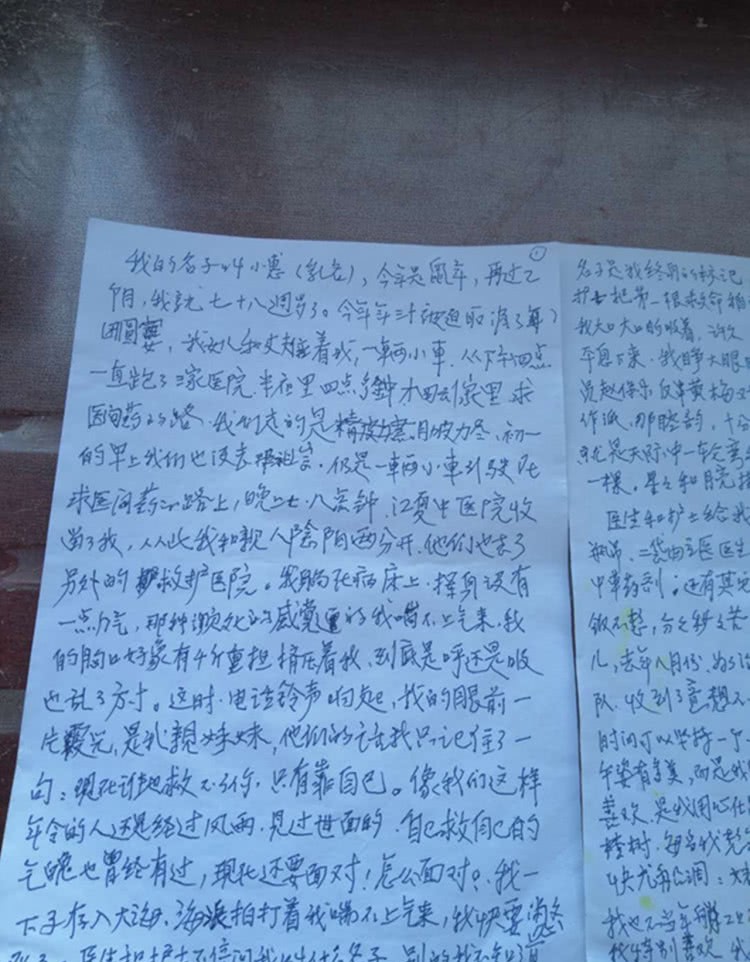 ①
我的名字叫小惠(乳名),今年是鼠年,再过2
月,我就七十八週岁了。今年年三十被迫取消了年
团圆宴,我女儿和丈夫陪着我,一辆小車,从下午四点
一直跑了三家医院,半夜里四点多鐘才回到家里 求
医问药的路,我们走的是精疲力尽,初一
的早上我们也没去拜祖宗,仍是一辆小車行驶在
求医问药的路上,晚上七、八点钟,江夏中医院收
留了我,从此我和親人陰阳两分开,他们也去了
另外的救护医院。我躺在病床上,浑身没有
一点力气,那种濒死的感觉逼的我喘不上气来,我
的胸口好象有千斤重担 挤压着我,到底是呼还是吸
也乱了方寸。这时,电话铃声响起,我的眼前一
片霞光,是我親妹妹,他们的话我只记住了一
句:现在谁也救不了你,只有靠自己。像我们这样
年令的人还是经过风雨,见过世面的,自己救自己的
气魄也曾经有过,现在还要面对,怎么面对?我一
下子存入大海,海浪拍打着我喘不上气来,我快要
医生和护士不停问我叫什么名子,别的我不知道
名子是我终身的标记
护士把第一根救命
我大口大口的吸着,
平息下来。我睁大眼
作派,那腔韵,十分
就是天际中一轮弯
一棵。星星和月亮
医生和护士给我
中草药剂。还有其它
做不起,分分秒秒苦
儿,去年八月份,为了
队,收到了意想不
时间可以坚持一个
午姿有多美,而是我
喜欢,是我用心在
我也不当年
我特别喜欢